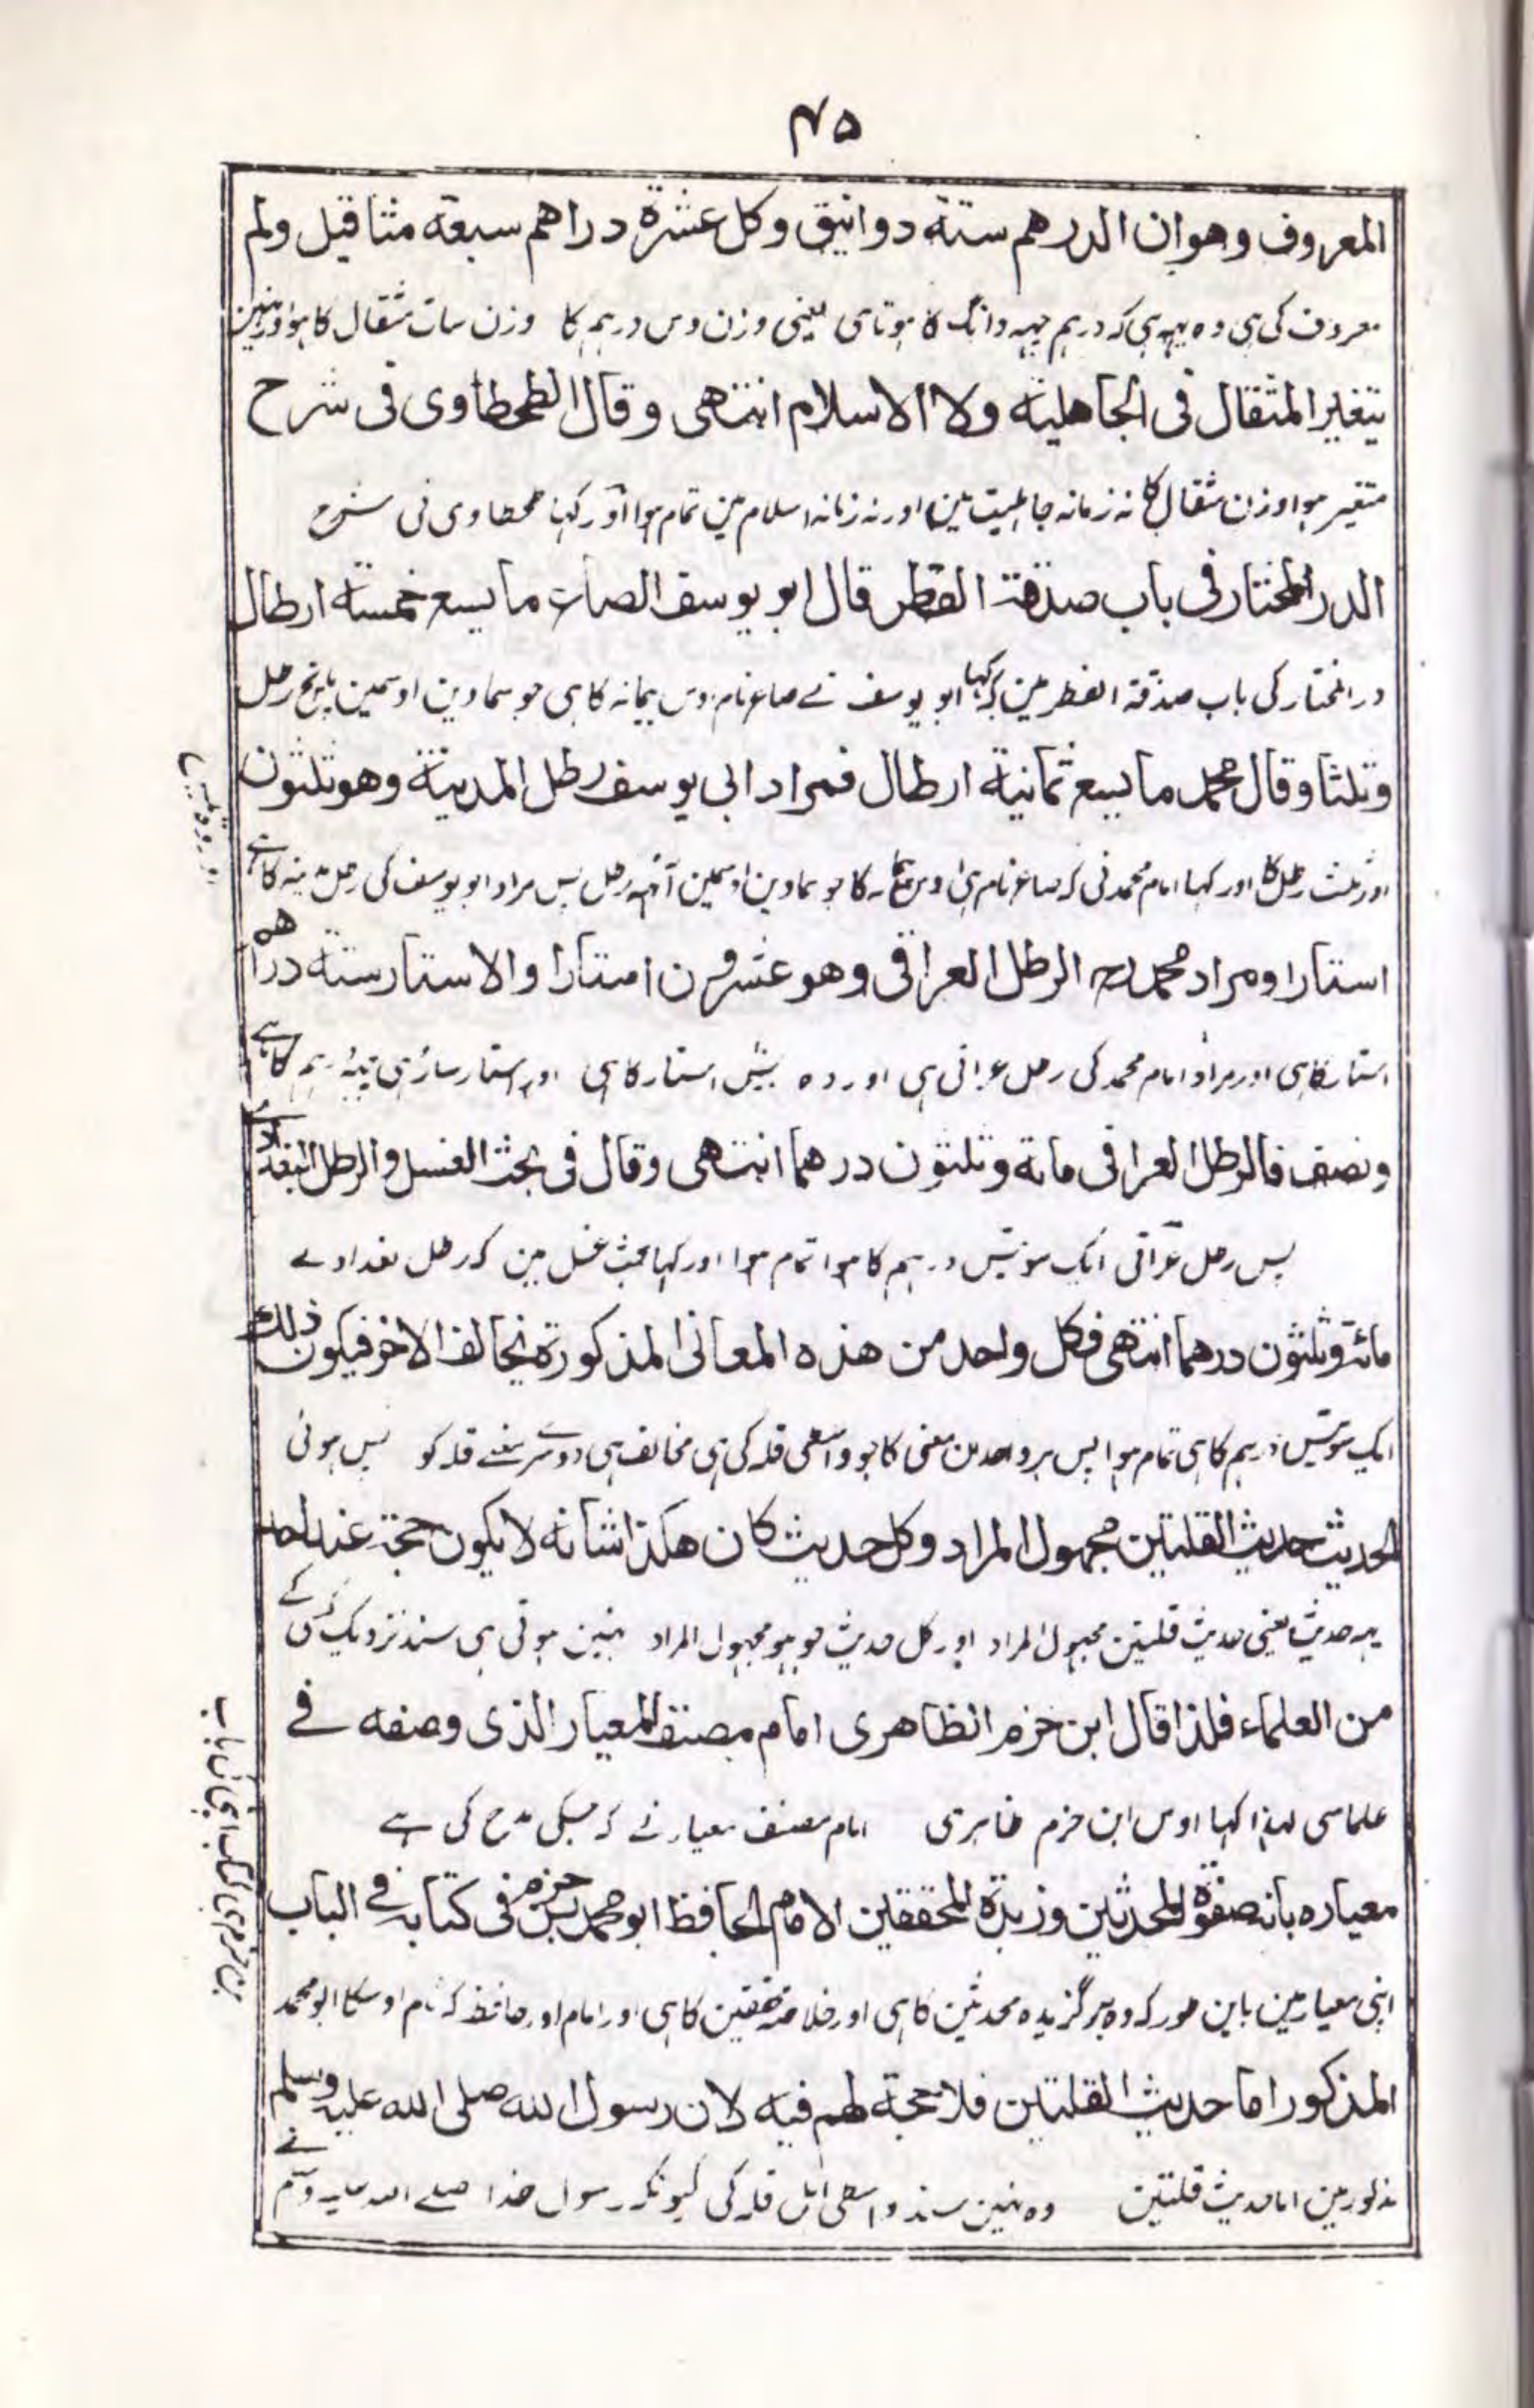 ۴۵
المعروف وهو ان الدرهم ستة دوانيق وكل عشرة دراهم سبعة مثاقيل ولم
معروف کی ہی وہ یہہ ہی کہ درہم چہہ دانگ کا ہوتا ہی یعنی وزن دس درہم کا وزن سات مثقال کا ہوا اور نہین
يتغير المثقال فى الجاهلية ولا الاسلام انتهى وقال الطحطاوى فى شرح
متغیر ہوا وزن مثقال کا نہ زمانہ جاہلیت مین اور نہ زمانہ اسلام مین تمام ہوا اور کہا طحطاوی نی شرح
الدر المختار فى باب صدقة الفطر قال ابو يوسف الصاع ما يسع خمسة ارطال
در المختار کی باب صدقۃ الفطر مین کہ کہا ابو یوسف نے صاع نام اوس پیمانہ کا ہی جو سماوین اوسمین پانچ رطل
وثلثا وقال محمد ما يسع ثمانية ارطال فمراد ابى يوسف رطل المدينة وهو ثلثون
اور ثلث رطل کا اور کہا امام محمد نی کہ صاع نام ہی اوس پیمانہ کا جو سماوین اوسمین آٹہہ رطل پس مراد ابو یوسف کی رطل مدینہ کا ہے
استارا ومراد محمد رح الرطل العراقى وهو عشرون استارا والاستار ستة دراهم
استار کا ہی اور مراد امام محمد کی رطل عراقی ہی اور وہ بیس استار کا ہی اور استار ساڑہی چہہ درہم کا ہے
ونصف فالرطل العراقى مائة وثلثون درهما انتهى وقال فى بحث الغسل والرطل البغدادے
پس رطل عراقی ایک سو تیس درہم کا ہوا تمام ہوا اور کہا بحث غسل مین کہ رطل بغدادے
مائة وثلثون درهما انتهى فكل واحد من هذه المعانى المذكورة يخالف الاخر فيكون ذلك
ایک سو تیس درہم کا ہی تمام ہوا پس ہر واحد من معنی کا جو واسطی قلہ کی ہی مخالف ہی دوسرے معنے قلہ کو پس ہوئی
الحديث حديث القلتين مجهول المراد وكل حديث كان هكذا شانه لا يكون حجة عند احد
یہہ حدیث یعنی حدیث قلتین مجہول المراد اور کل حدیث جو ہو مجہول المراد نہین ہوتی ہی سند نزدیک کسی کے
من العلماء فلذا قال ابن حزم الظاهرى امام مصنف المعيار الذى وصفه فے
علما سی لہذا کہا اوس ابن حزم ظاہری امام مصنف معیار نے کہ جسکی مدح کی ہے
معياره بانه صفوة المحدثين وزبدة المحققين الامام الحافظ ابو محمد بن حزم فى كتابه فے الباب
اپنی معیار مین باین طور کہ وہ برگزیدہ محدثین کا ہی اور خلاصہ محققین کا ہی اور امام اور حافظ کہ نام اوسکا ابو محمد
المذكور اما حديث القلتين فلا حجة لهم فيه لان رسول الله صلى الله عليه وسلم
مذکور مین اما حدیث قلتین وہ نہین سند واسطی اہل قلہ کی کیونکہ رسول خدا صلے اللہ علیہ وسلم نے